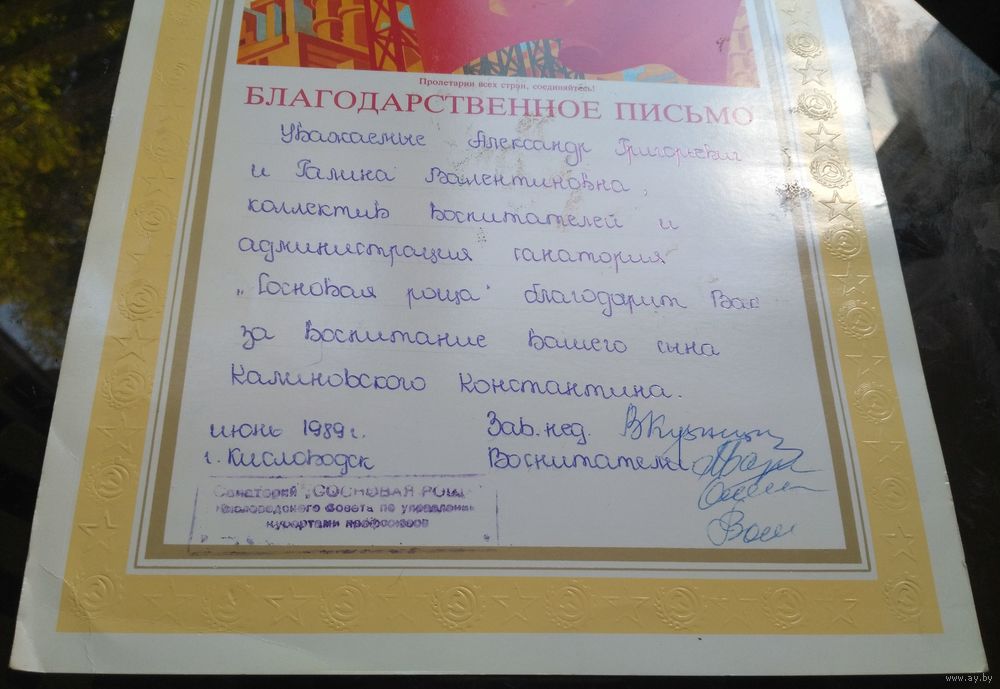 Пролетарии всех стран, соединяйтесь!
БЛАГОДАРСТВЕННОЕ ПИСЬМО
Уважаемые Александр Григорьевич
и Галина Валентиновна,
коллектив воспитателей и
администрация санатория
„Сосновая роща" благодарит Вас
за воспитание Вашего сына
Калиновского Константина.
июнь 1989 г.
Зав. пед.
г. Кисловодск
Воспитатели
Санаторий „СОСНОВАЯ РОЩА
Кисловодского Совета по управлению
курортами профсоюзов
www.ay.by